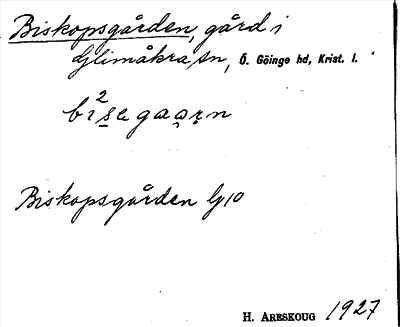 Biskopsgården, gård i
Glimåkra sn, Ö. Göinge hd, Krist. l.
Biskopsgården lj 10
H. ARESKOUG 1927